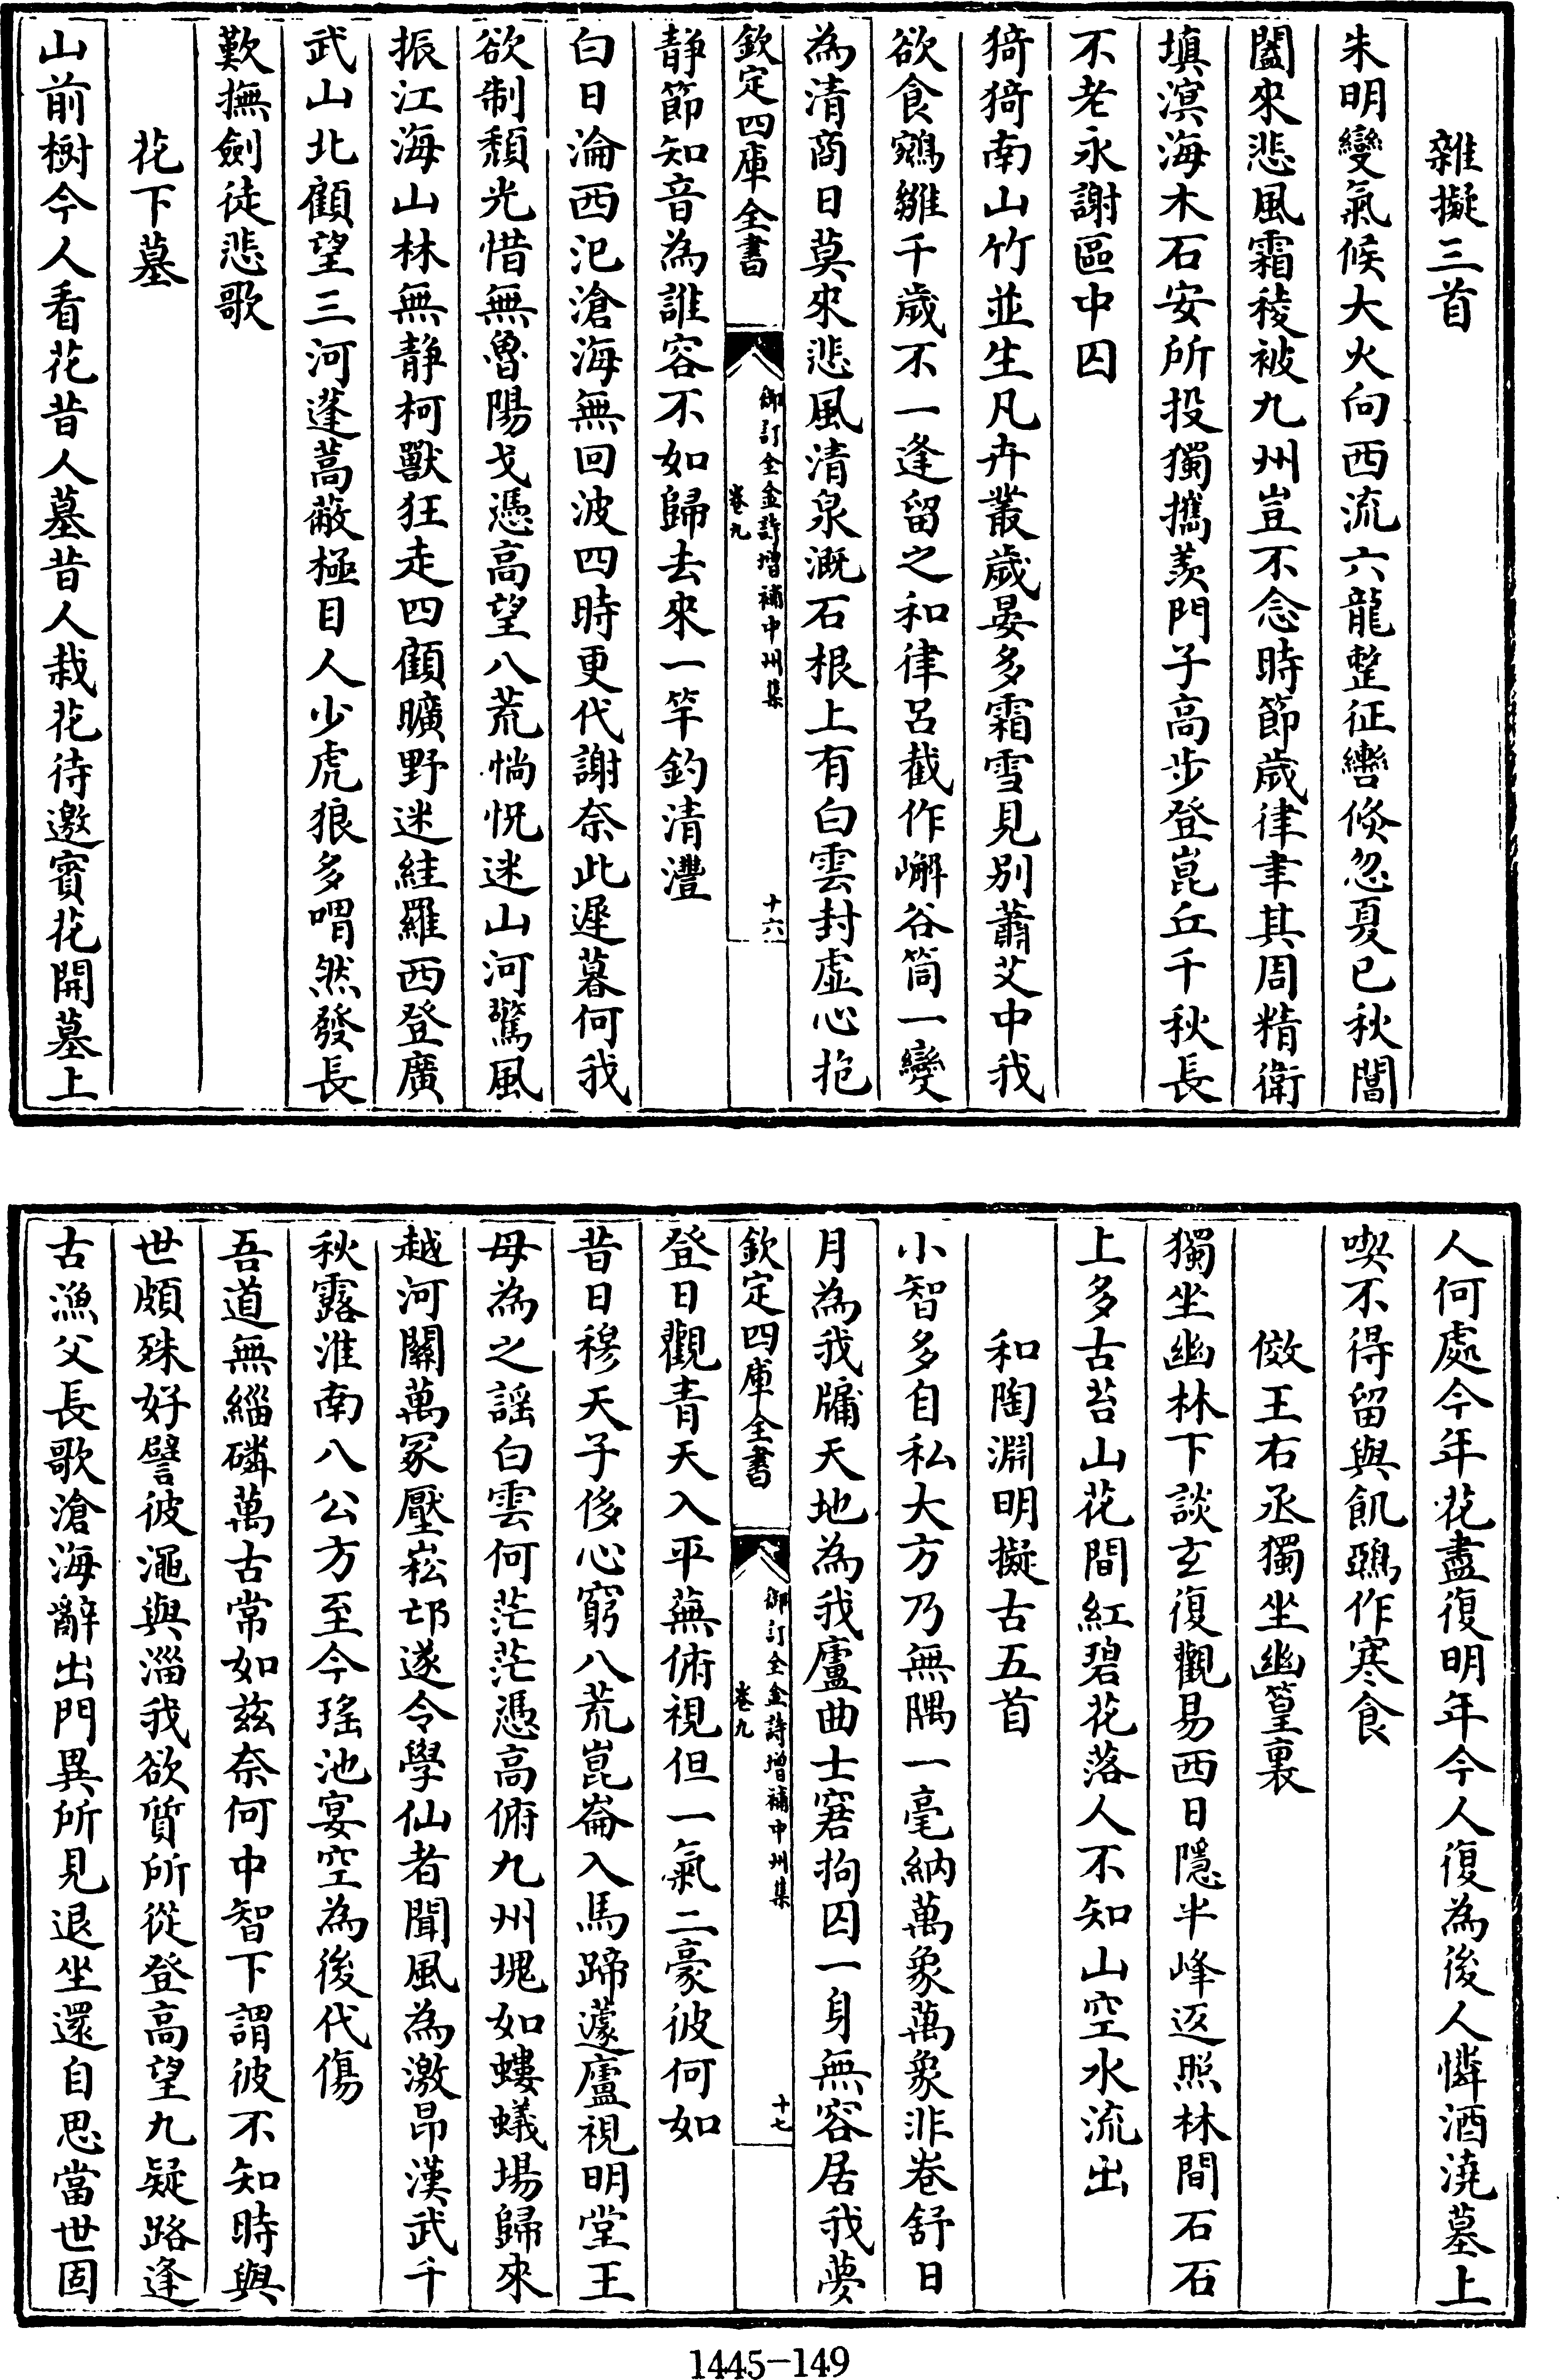 雜擬三首
朱明變氣候大火向西流六龍整征轡倐忽夏已秋閶
闔來悲風霜稜被九州豈不念時節歲律聿其周精衛
填溟海木石安所投獨攜羨門子高步登崑丘千秋長
不老永謝區中囚
猗猗南山竹並生凡卉叢歲晏多霜雪見別蕭艾中我
欲食鵷雛千歲不一逢留之和律呂截作嶰谷筒一變
為清商日莫來悲風清泉溉石根上有白雲封虛心抱
欽定四庫全書
御訂全金詩增補中州集
卷九
十六
靜節知音為誰容不如歸去來一竿釣清灃
白日淪西汜滄海無回波四時更代謝奈此遲暮何我
欲制頹光惜無魯陽戈憑高望八荒惝怳迷山河驚風
振江海山林無靜柯獸狂走四顧曠野迷絓羅西登廣
武山北顧望三河蓬蒿蔽極目人少虎狼多喟然發長
歎撫劍徒悲歌
花下墓
山前樹今人看花昔人墓昔人栽花待邀賓花開墓上
人何處今年花盡復明年今人復為後人憐酒澆墓上
喫不得留與飢鴉作寒食
倣王右丞獨坐幽篁裏
獨坐幽林下談玄復觀易西日隱半峰返照林間石石
上多古苔山花間紅碧花落人不知山空水流出
和陶淵明擬古五首
小智多自私大方乃無隅一毫納萬象萬象非卷舒日
月為我牖天地為我廬曲士窘拘囚一身無容居我夢
欽定四庫全書
御訂全金詩增補中州集
卷九
十七
登日觀青天入平蕪俯視但一氣二豪彼何如
昔日穆天子侈心窮八荒崑崙入馬蹄蘧廬視明堂王
母為之謠白雲何茫茫憑高俯九州塊如螻蟻場歸來
越河關萬冢壓崧邙遂令學仙者聞風為激昂漢武千
秋露淮南八公方至今瑤池宴空為後代傷
吾道無緇磷萬古常如兹奈何中智下謂彼不知時與
世頗殊好譬彼澠與淄我欲質所從登高望九疑路逢
古漁父長歌滄海辭出門異所見退坐還自思當世固
1445-149